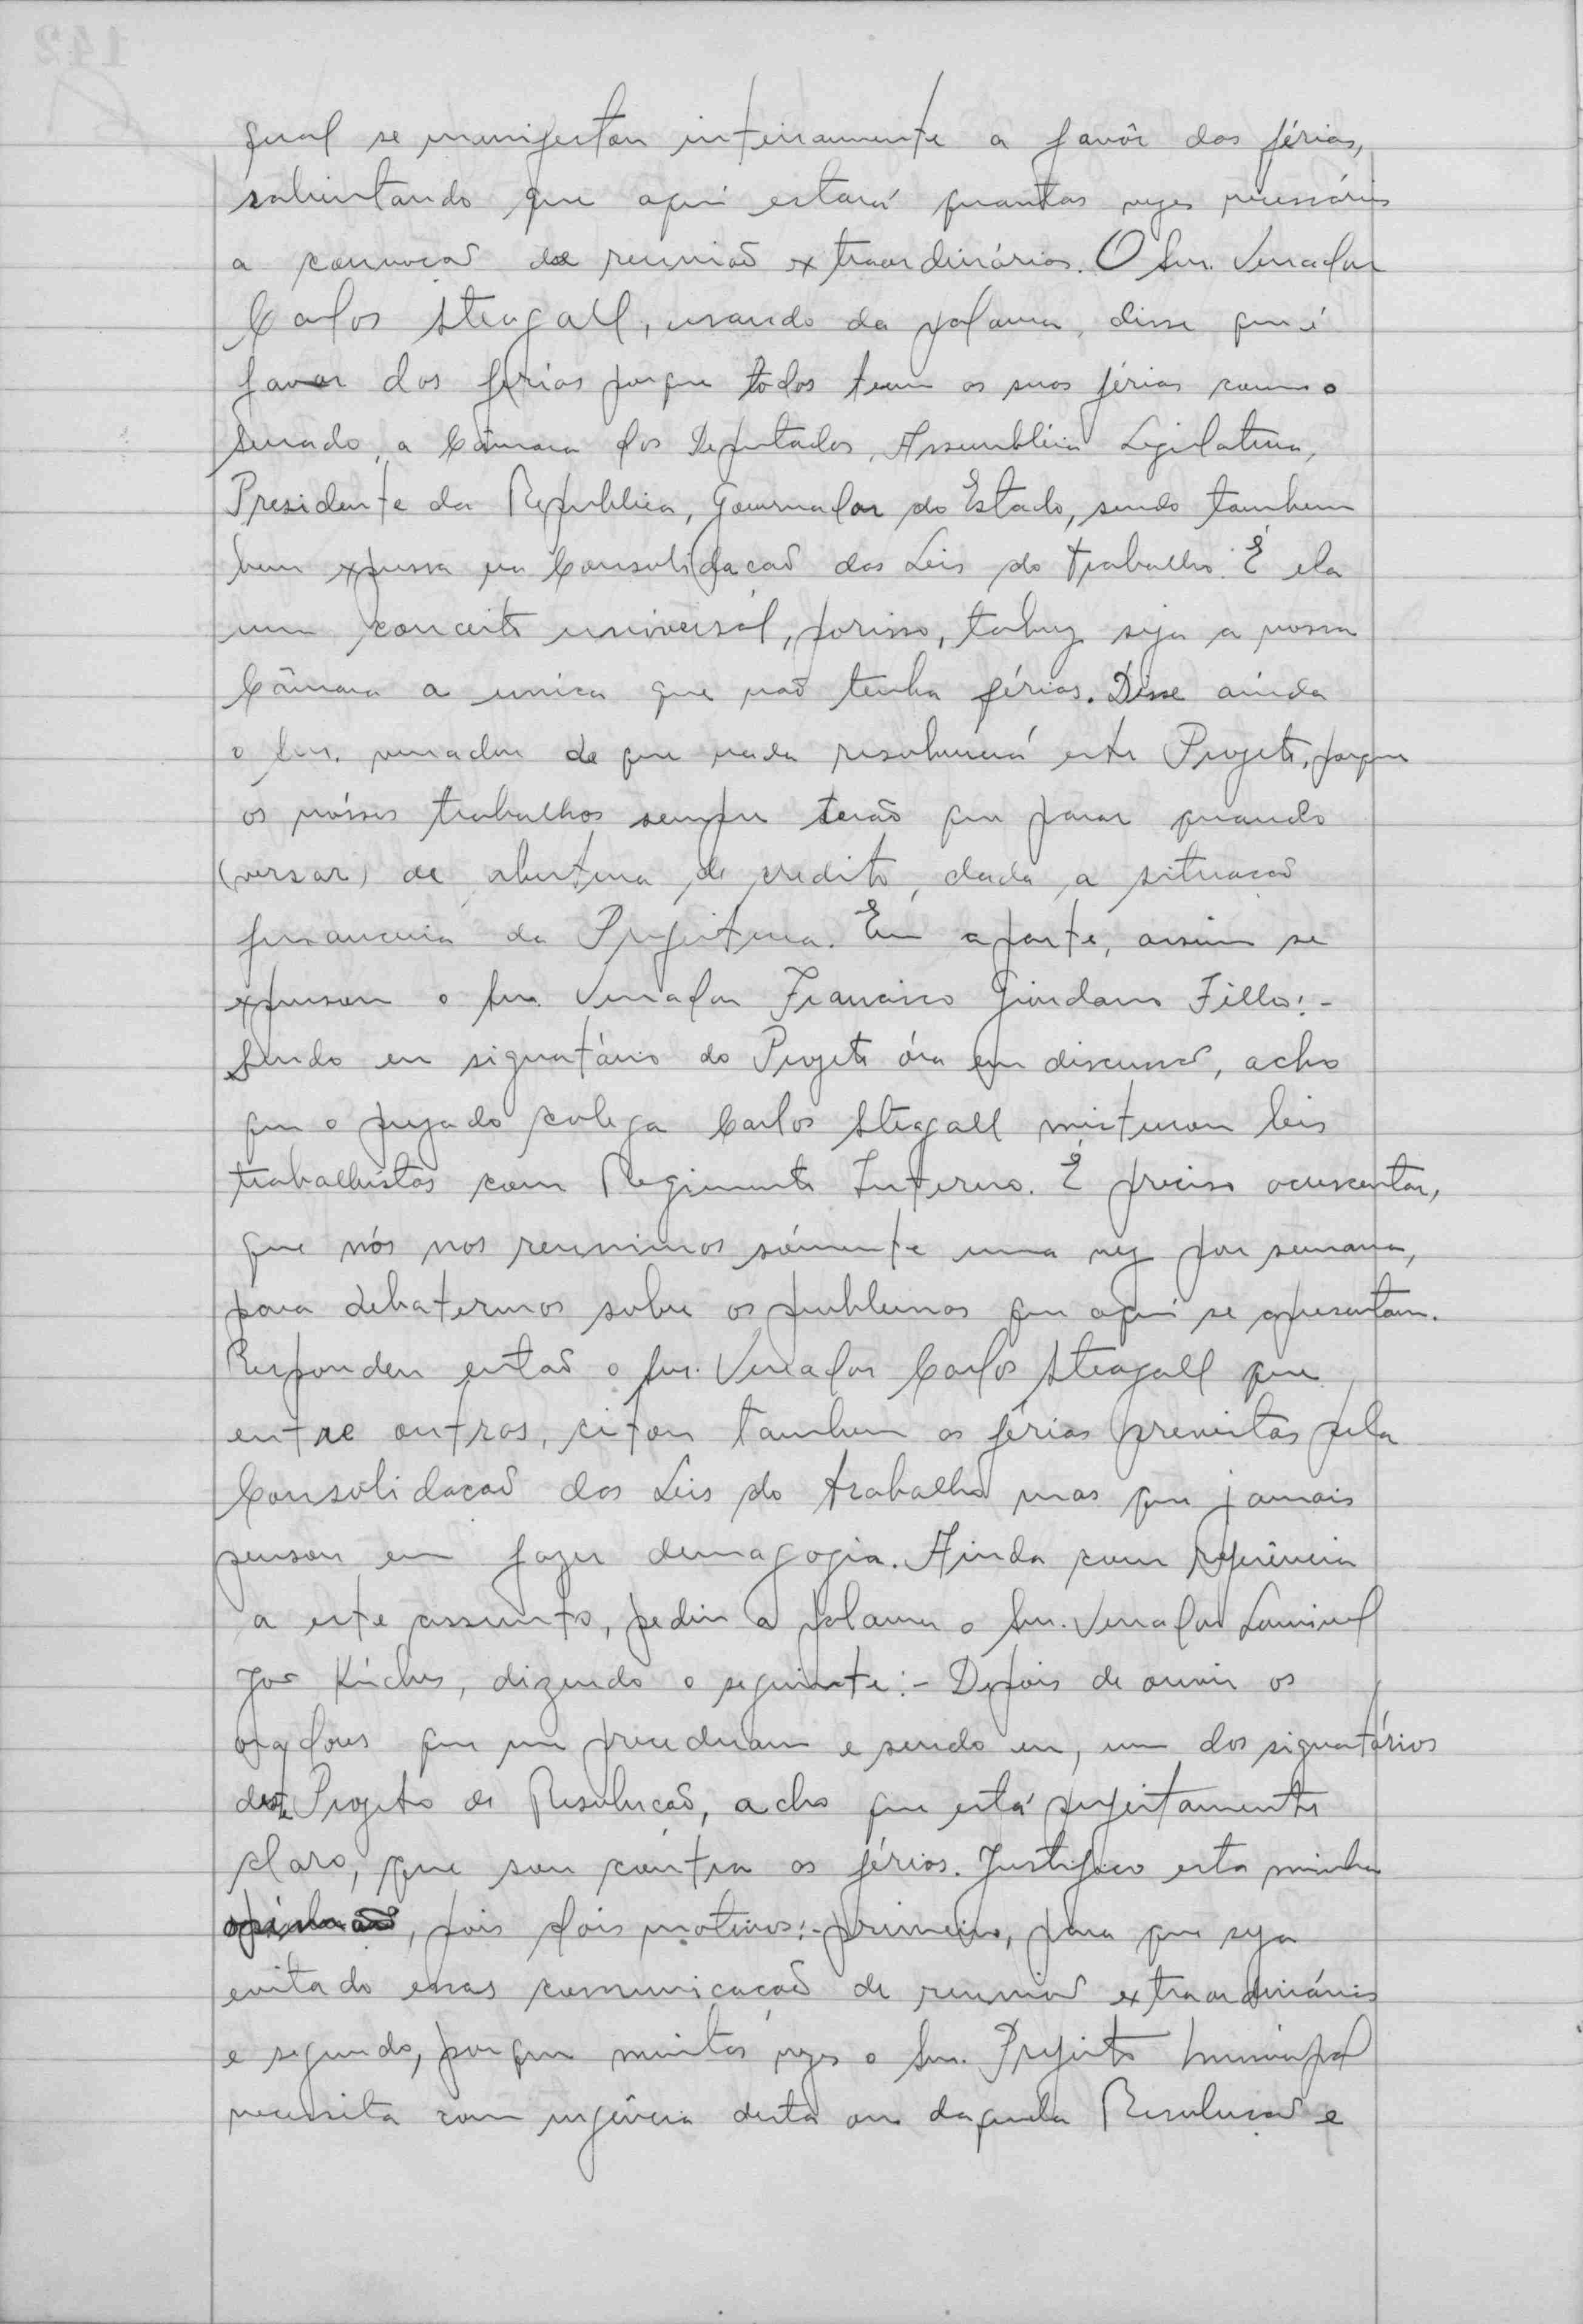 qual se manifestou inteiramente a favôr das férias,
salientando que aqui estará quantas vezes necessários
a convocaõ de reuniaõ extraordinários. O Snr. Vereador
Carlos Steagall, usando da palavra, disse que é
favor das ferias porque todos teem as suas férias como o
Senado, a Câmara dos Deputados, Assembléia Legilativa,
Presidente da Republica, Governador do Estado, sendo tambem
bem expressa na Consolidacaõ das Leis do trabalho. É ela
um conceito universal, porisso, talvez seja a nossa
Câmara a unica que naõ tenha férias. Disse ainda
o Snr. vereador de que nada resolverá este Projeto, porque
os nóssos trabalhos sempre teraõ que parar quando
(versar) de abertura de credito, dada a situacaõ
financeira da Prefeitura. Em aparte, assim se
expressou o Snr. Vereador Francisco Giordano Filho:-
Sendo eu signatário do Projeto óra em discussaõ, acho
que o prezado colega Carlos Steagall misturou leis
trabalhistas com Regimento Interno. É preciso acrescentar,
que nós nos reunimos sómente uma vez por semana,
para debatermos sobre os problemas que aqui se apresentam.
Respondeu entaõ o Snr. Vereador Carlos Steagall que
entre outras, citou tambem as férias previstas pela
Consolidacaõ das Leis do trabalho mas que jamais
pensou em fazer demagogia. Ainda com referência
a este assunto, pediu a palavra o Snr. Vereador
dizendo o seguinte:- Depois de ouvir os
oradores que me precederam e sendo eu, um dos signatários
deste Projeto de Resolucaõ, acho que está perfeitamente
claro, que sou cóntra as férias. Justifico esta minha
opiniaõ, pois dois motivos:- primeiro, para que seja
evitado essas comunicacaõ de reuniaõ extraordinários
e segundo, porque muitas vezes o Snr. Prefeito Municipal
necessita com urgência desta ou daquela Resolucaõ e
142